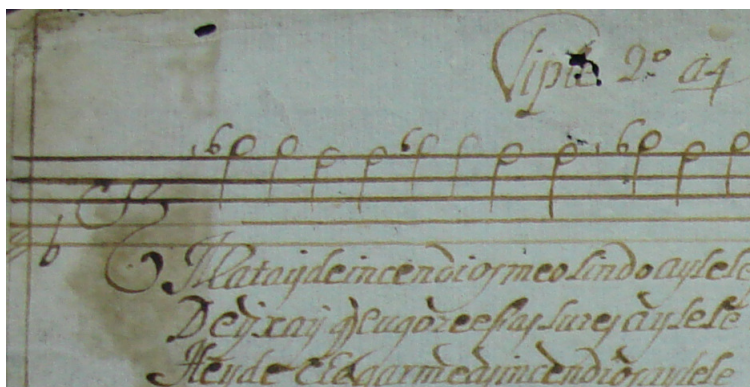 Tiple 2º a4
Matayde incendios meo lindo ay le le
Deyxay q̃ eu gore essas lures ay le le
Heyde chegarme ay incendios ay le le